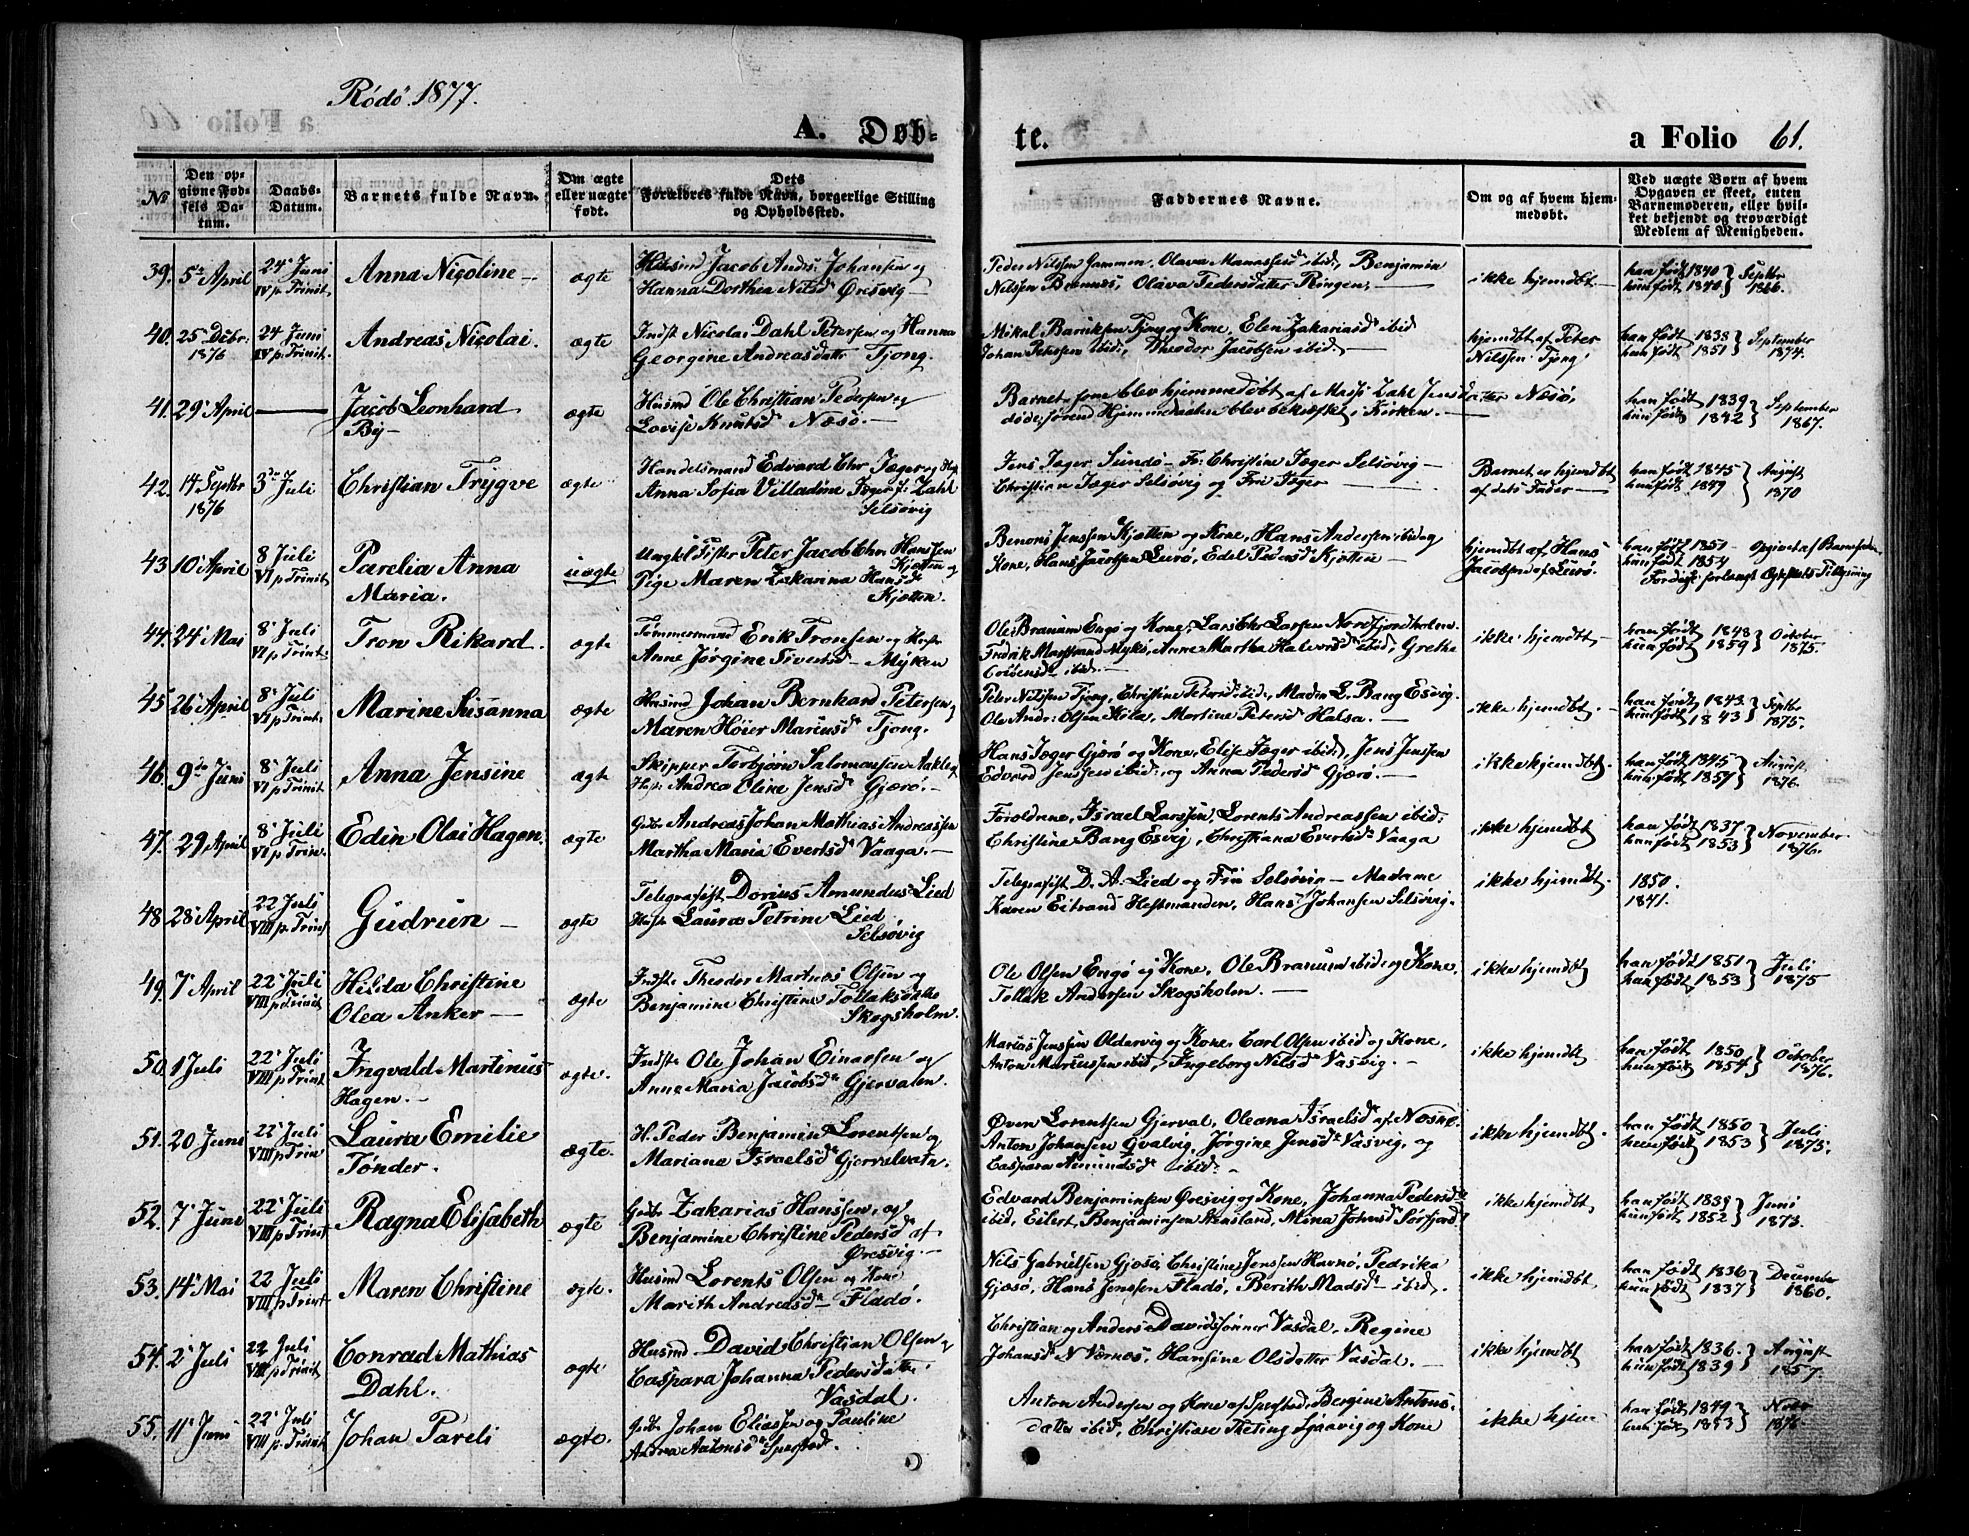 Rödö 1877.
A. Døb-
te.
a Folio 61.
No
Den opgivne Fødsels Datum.
Daabs-Datum.
Barnets fulde Navn.
Om ægte eller uægte født.
Dets Forældres fulde Navn, borgerlige Stilling og Opholdssted.
Faddernes Navne.
Om og af hvem hjemmedøbt.
Ved uægte Børn af hvem Opgaven er skeet, enten Barnemoderen, eller hvilket bekjendt og troværdigt Medlem af Menigheden.
39. 5te April 24' Juni IV p. Trinit. Anna Nicoline ægte
Husmd Jacob Andr. Johansen og
Hanna Dorthea Nilsd Øresvig
Peder Nilssen Gammen, Olava Manassesd ibid, Benjamin
Nilssen Bremnes, Olava Pedersdatter Ringen,
ikke hjemdbt.
han født 1840
hun født 1840 Septbr 1866.
40. 25' Decbr. 1876 24 Juni IV p. Trinit. Andreas Nicolai. ægte
Indst Nicolai Dahl Petersen og Hanna
Georgine Andreasdatt Tjong.
Mikal Bariksen Tjong og Kone, Elen Zakariasd ibid
Johan Petersen ibid, Theodor Jacobsen ibid.
hjemdbt af Peter
Nilssen Tjong
han født 1838
hun født 1851 September 1874.
41. 29' April Jacob Leonhard By ægte
Husmd Ole Christian Pedersen og
Lovise Knutsd Næsö.
Barnet som blev hjemmedøbt af Massi Zahl Jensdatter Næsö,
döde, förend Hjemmedaaben blev bekræftet i Kirken.
han født 1839
hun født 1842 September 1867.
42. 14 Septbr 1876 3de Juli Christian Trygve ægte
Handelsmand Edvard Chr Jæger og Hst
Anna Sofia Villadine Jæger f. Zahl
Selsövig
Jens Jæger Sundö Fr. Christine Jæger Selsövig
Christian Jæger Selsövig og Fri Jæger
Barnet er hjemdbt
af dets Fader
han født 1845
hun født 1849 August 1870
43. 10' April 8 Juli VI p. Trinit. Parelia Anna Maria. uægte
Ungkl Fisker Peter Jacob Chr Hanssen
Kjøtten og
Pige Maren Zakarina Hansd
Kjøtten.
Benoni Jenssen Kjøtten og Kone, Hans Andersen ibid og
Kone, Hans Jacobsen Lurö, Edel Pedersd Kjøtten
hjemdbt af Hans
Jacobsen af Lurö.
han født 1851
hun født 1854 Opgivet af Barnefaderen
44. 24' Mai 8' Juli VI p. Trinit. Tron Rikard. ægte
Tömmermand Erik Tronsen og Hst
Anne Jørgine Sivertsd Myken
Ole Branum Engö og Kone, Lars Chr Larsen Nordfjordholm.
Fredrik Myken, Anne Martha Halvorsd ibid, Grethe
ibid.
ikke hjemdbt
han født 1848
hun født 1859 October 1875.
45. 26' April 8' Juli VI p. Trinit. Marine Susanna ægte
Husmd Johan Bernhard Petersen og
Maren Höier Mariusd Tjong.
Peter Nilssen Tjong, Christine Petersd ibid, Madin L. Bang Esvig.
Ole Andr. Olsen Kila, Martine Petersd Halsa.
ikke hjemdbt.
han født 1843.
hun født 1843 Septbr 1875.
46. 9de Juni 8' Juli VI p. Trinit. Anna Jensine ægte
Skipper Torbjørn Salomonsen Nakling
Hst Andrea Oline Jensd Gjærö.
Hans Jæger Gjærö og Kone, Elise Jæger ibid, Jens Jenssen
Edvard Jenssen ibid, og Anna Pedersd Gjærö.
ikke hjemdbt.
han født 1845
hun født 1857 August 1876.
47. 29 April 8' Juli VI p. Trin. Edin Olai Hagen. ægte
Gdbr Andreas Johan Mathias Andreassen
Martha Maria Evertsd Vaaga.
Foreldrene, Israel Larssen, Lorents Andreassen ibid,
Christine Bang Esvig, Christiana Evertsd Vaaga
ikke hjemdbt
han født 1837
hun født 1853 November 1876.
48. 28' April 22 Juli VIII p. Trinit Gudrun ægte
Telegrafist Dorius Amundus Lied
Hst Laura Petrine Lied,
Selsövig
Telegrafist D. A. Lied og Fru Selsövig Madame
Karen Eitrand Hestmanden, Hans Johansen Selsövig.
ikke hjemdbt.
1850.
1841.
49. 7' April 22' Juli VIII p. Trinit Hilda Christine Olea Anker ægte
Indst Theodor Martnus Olsen og
Benjamine Christine Tollaksdtr
Skogsholm.
Ole Olsen Engö og Kone, Ole Branum ibid og Kone,
Tollak Andersen Skogsholm.
ikke hjemdbt
han født 1851
hun født 1853 Juli 1875
50. 1 Juli 22' Juli VIII p. Trinit Ingvald Martinus Hagen. ægte.
Indst Ole Johan Einarsen og
Anne Maria Jacobsd Gjervalen.
Marius Jenssen Oldervig og Kone, Carl Olsen ibid og Kone,
Anton Mariussen ibid, Ingeborg Nilsd Vasvig.
ikke hjemdbt
han født 1850
hun født 1854 October 1876.
51. 20 Juni 22' Juli VIII p. Trin Laura Emilie Tønder. ægte.
H. Peder Benjamin Lorentsen og
Mariane Israelsd Gjervalvatn.
Øven Lorentsen Gjerval, Oleana Israelsd af Næsne.
Anton Johansen Qvalvig, Jørgine Jensd Vasvig, og
Caspara Amundsd ibid.
ikke hjemdbt.
han født 1850
hun født 1853 Juli 1875.
52. 7' Juni 22' Juli VIII p. Trinit Ragna Elisabeth ægte
Gdbr Zakarias Hanssen, og
Benjamine Christine Pedersd af
Øresvig.
Edvard Benjaminsen Øresvig og Kone, Johanna Pedersd
ibid, Eilert Benjaminsen Stensland, Mina Johnsd Sørfjord
ikke hjemdbt
han født 1839
hun født 1852 Juni 1873.
53. 14' Mai 22 Juli VIII p. Trinit Maren Christine ægte.
Husmd Lorents Olsen og Kone
Marith Andreasd Fladö.
Nils Gabrielsen Gjosö, Christine Jenssen Havnö, Pedrika
Gjosö, Hans Jenssen Fladö, Berith Madsd ibid.
ikke hjemdbt
han født 1836
hun født 1837 December 1860.
54. 2' Juli 22 Juli VIII p. Trinit Conrad Mathias Dahl. ægte
Husmd David Christian Olsen og
Caspara Johanna Pedersdatter
Vasdal.
Christian og Anders Davidssønner Vasdal, Regine
Johansd N Værnes, Hansine Olsdatter Vasdal.
ikke hjemdbt
han født 1836.
hun født 1839 August 1857.
55. 11' Juni 22' Juli VIII p. Trinit Johan Pareli ægte.
Gdbr Johan Eliassen og Pauline
Andrea Antonsd Spæstad.
Anton Andersen og Kone af Spæstad, Bergine Antons-
datter ibid, Christian Theting Sjaavig og Kone
ikke hjem
han født 1849
hun født 1853 Novbr 1876